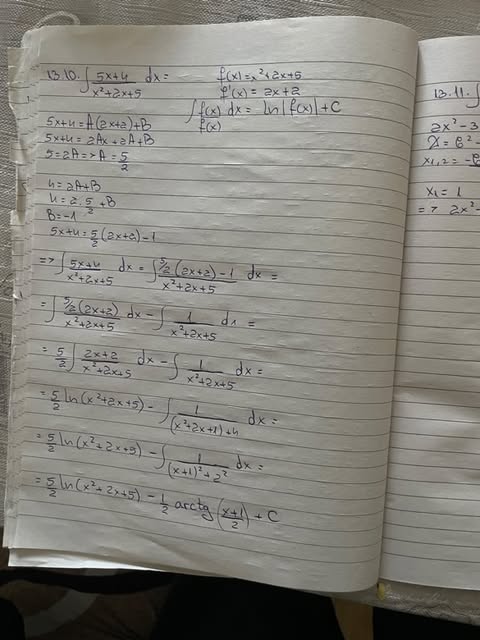 13.10. ∫ (5x+4)/(x²+2x+5) dx =
f(x)=x²+2x+5
f'(x)=2x+2
∫ f(x)/f(x) dx = ln|f(x)|+C
5x+4=A(2x+2)+B
5x+4=2Ax+2A+B
5=2A=>A=5/2
4=2A+B
4=2·5/2+B
B=-1
5x+4=5/2(2x+2)-1
=> ∫ (5x+4)/(x²+2x+5) dx = ∫ (5/2(2x+2)-1)/(x²+2x+5) dx =
= ∫ (5/2(2x+2))/(x²+2x+5) dx - ∫ 1/(x²+2x+5) dx =
= 5/2 ∫ (2x+2)/(x²+2x+5) dx - ∫ 1/(x²+2x+5) dx =
= 5/2 ln(x²+2x+5) - ∫ 1/((x²+2x+1)+4) dx =
= 5/2 ln(x²+2x+5) - ∫ 1/((x+1)²+2²) dx =
= 5/2 ln(x²+2x+5) - 1/2 arctg((x+1)/2) + C
13.11. ∫
2x²-3
x₁,₂ = -
x₁ = 1
=> 2x²-